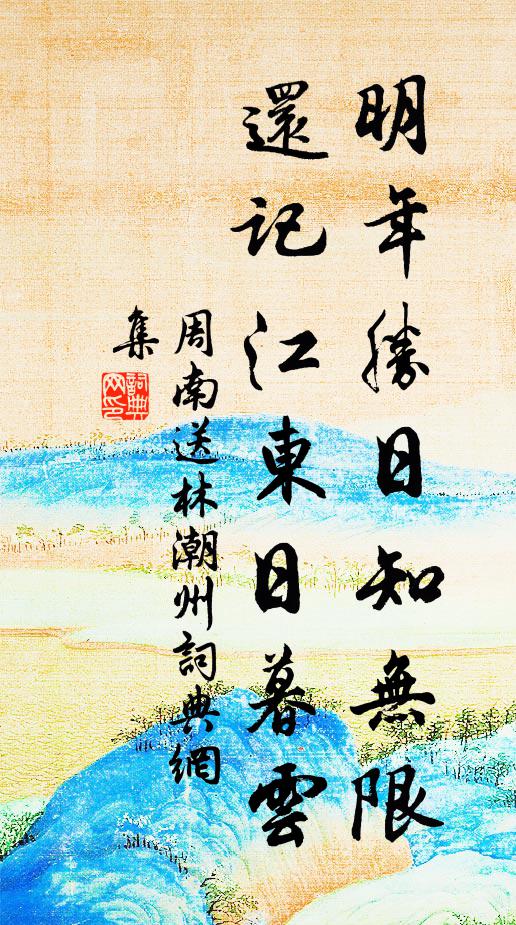 明年勝日知無限
還記江東日暮雲
周南送林潮州詞典網
集
詞典
网印